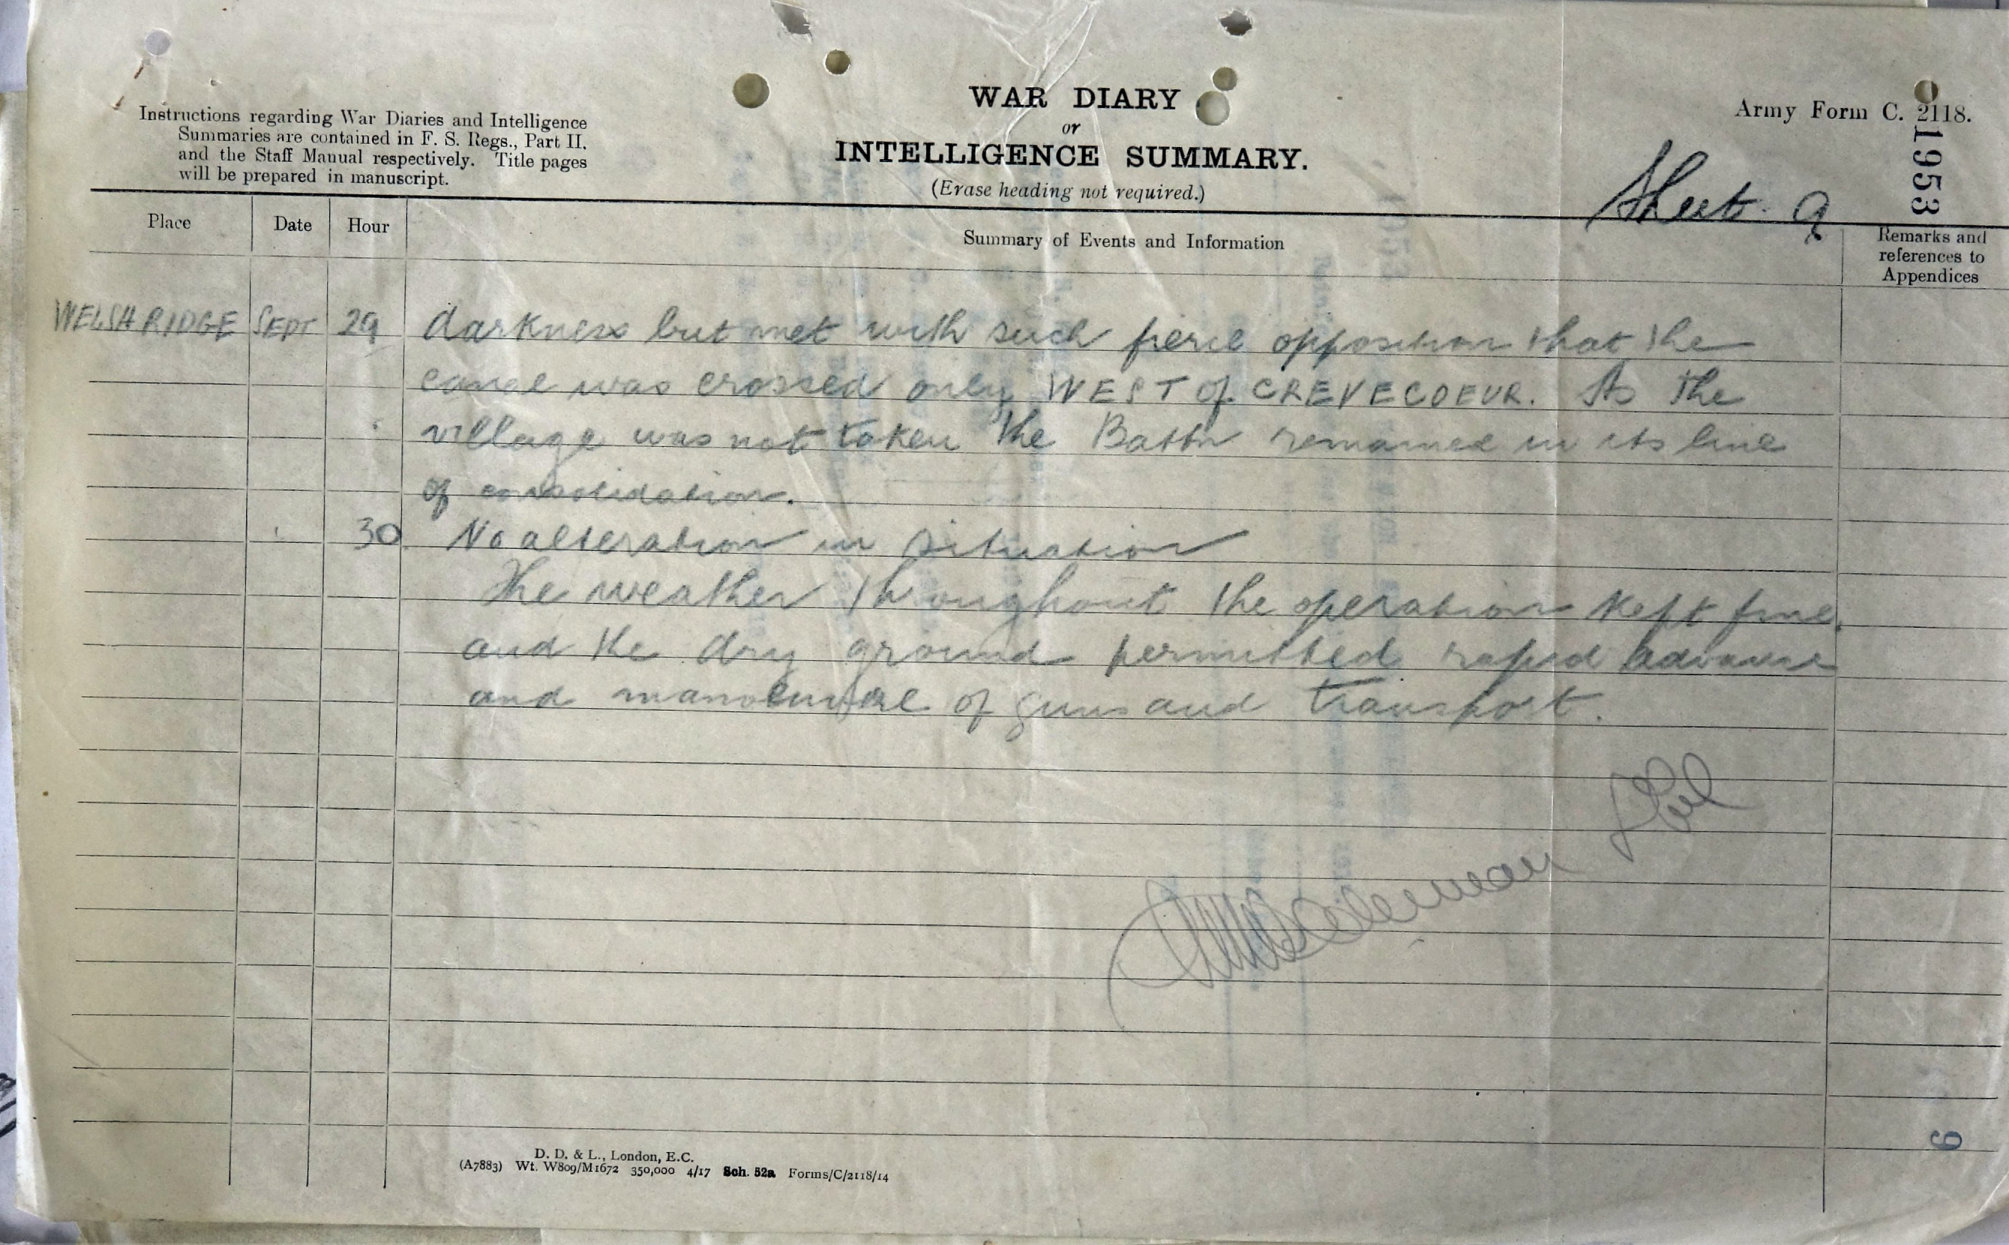 Instructions regarding War Diaries and Intelligence
Summaries are contained in F. S. Regs., Part II.
and the Staff Manual respectively. Title pages
will be prepared in manuscript.
WAR DIARY
or
INTELLIGENCE SUMMARY.
(Erase heading not required.)
Army Form C. 2118.
1953
Sheet. 9
Place Date Hour Summary of Events and Information Remarks and
references to
Appendices
WELSH RIDGE SEPT 29 darkness but met with such fierce opposition that the
canal was crossed only WEST of CREVECOEUR. As the
village was not taken the Battn remained in its line
of consolidation.
30 No alteration in situation
The weather throughout the operations kept fine,
and the dry ground permitted rapid advance
and manoeuvre of guns and transport.
9
D. D. & L., London, E.C.
(A7883) Wt. W809/M1672 350,000 4/17 Sch. 52a Forms/C/2118/14